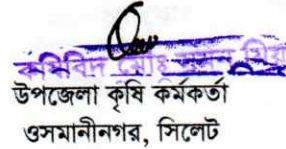 কৃষিবিদ মোঃ
উপজেলা কৃষি কর্মকর্তা
ওসমানীনগর, সিলেট